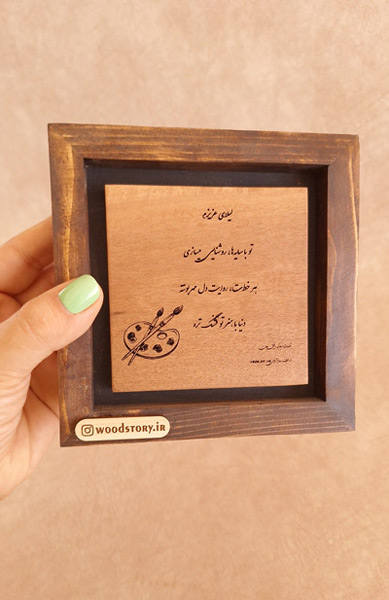 لیلای عزیزم
تو با سایه‌ها، روشنایی میسازی
هر خط‌ت، روایت دل مهربونته
دنیا با هنر تو قشنگ تره
woodstory.ir